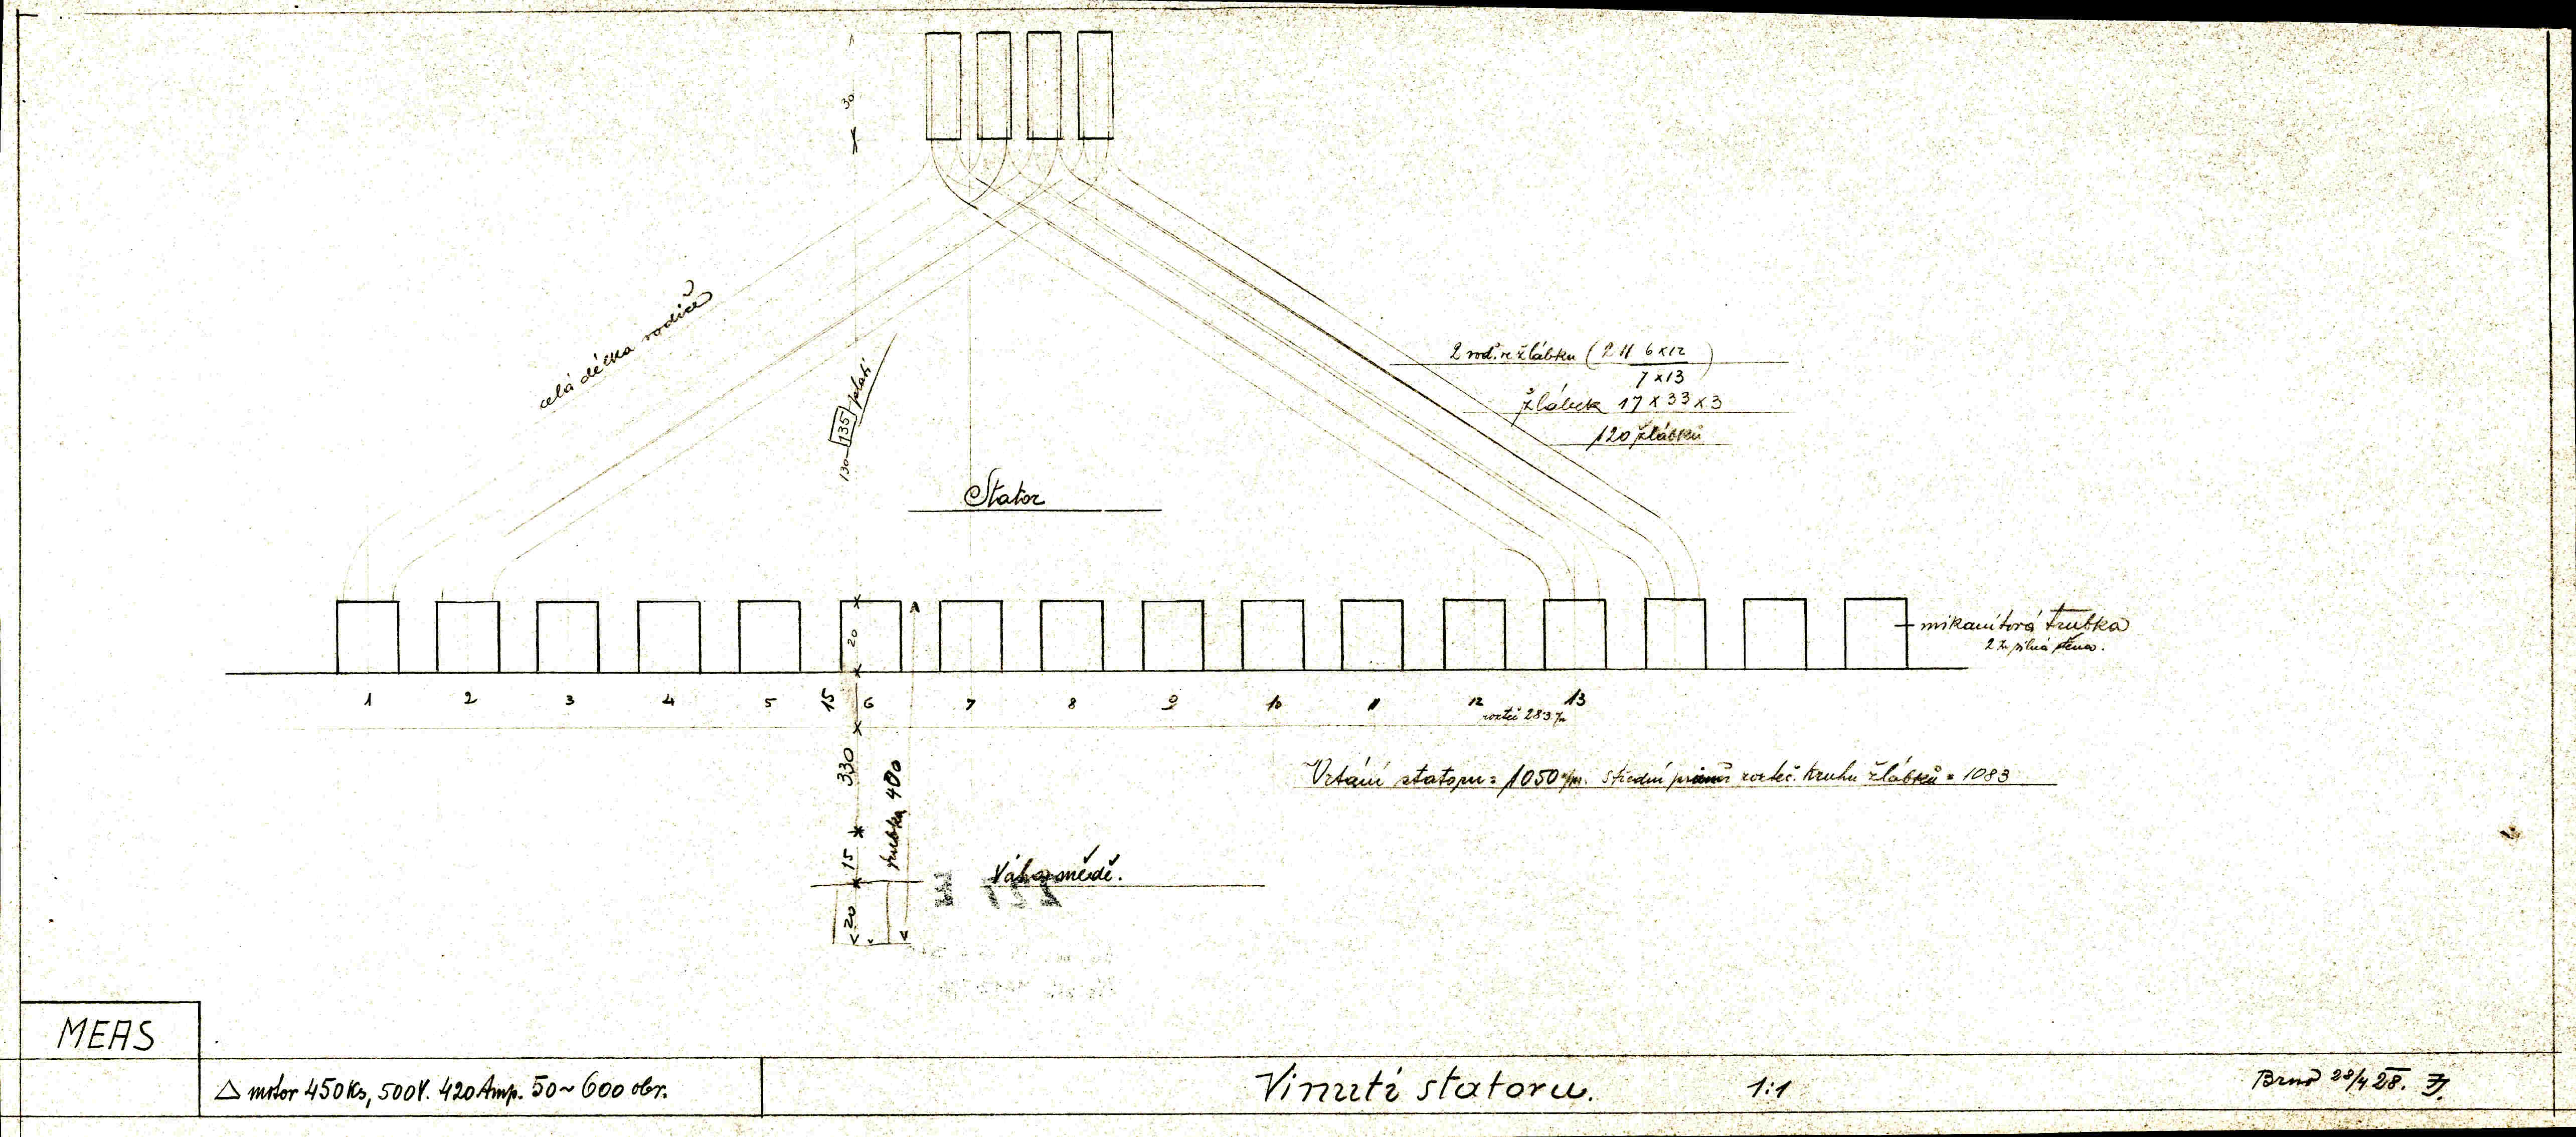 30
celá délka vodiče
130-135 platí
2 vod. v žlábku (2 II 6x12
7x13)
žlábek 17x33x3
120 žlábků
Stator
20
mikanitová trubka
2 m/m silná stěna.
1 2 3 4 5 6 7 8 9 10 11 12 13
15
rozteč 28·3 m/m
330
trubka 400
Vrtání statoru = 1050 m/m. Střední průměr rozteč. kruhu žlábků = 1083
15
Váha mědi.
20
MEAS
△ motor 450 Ks, 500V. 420 Amp. 50~ 600 obr.
Vinutí statoru.
1:1
Brno 28/4 28.